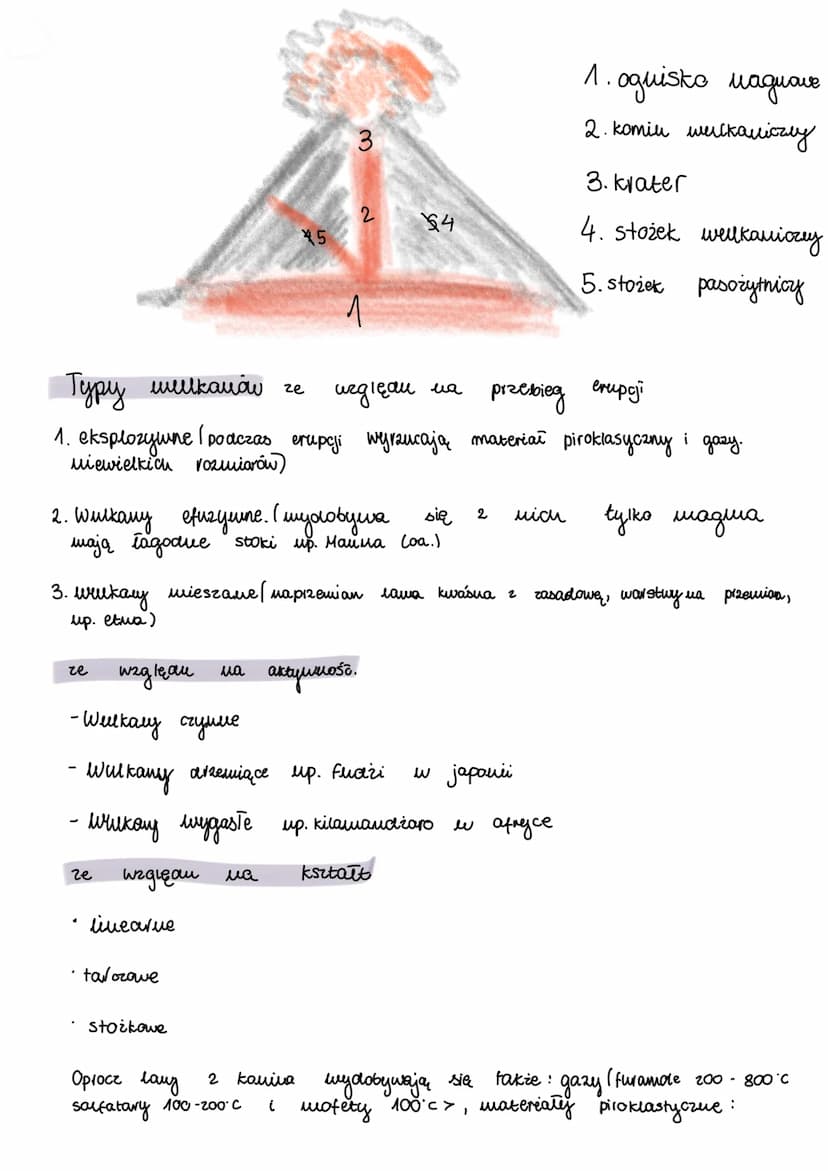 3
2
5
4
1
1. ognisko magmowe
2. komin wulkaniczny
3. krater
4. stożek wulkaniczny
5. stożek pasożytniczy
Typy wulkanów ze względu na przebieg erupcji
1. eksplozywne (podczas erupcji wyrzucają materiał piroklasyczny i gazy.
niewielkich rozmiarów)
2. Wulkany efuzywne. (wydobywa się z nich tylko magma
mają łagodne stoki np. Mauna Loa.)
3. wulkany mieszane (naprzemian lawa kwaśna z zasadową, warstwy na przemian,
np. etna)
ze względu na aktywność.
- Wulkany czynne
- Wulkany drzemiące np. Fudżi w japonii
- Wulkany wygasłe np. kilamandżaro w afryce
ze względu na kształt
· linearne
· tarczowe
· stożkowe
Oprocz lawy z komina wydobywają się także: gazy (furamole 200 - 800°C
solfatary 100-200°C i mofety 100°C >, materiały piroklastyczne: